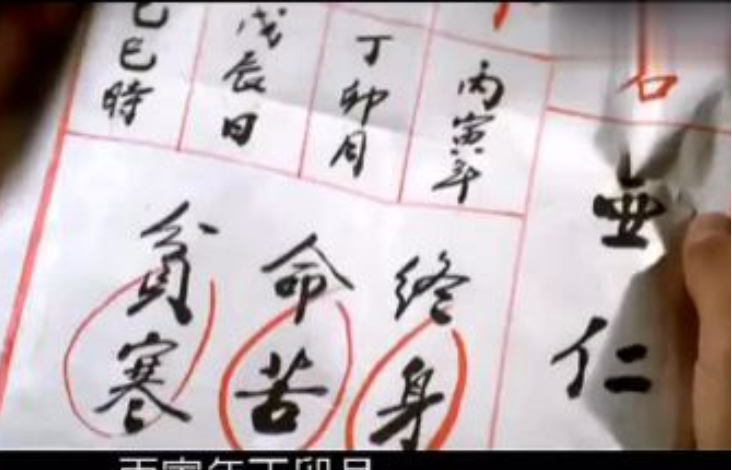 仁
丙寅年
丁卯月
戊辰日
己巳時
終身
命苦
貧寒
丙寅年丁卯月